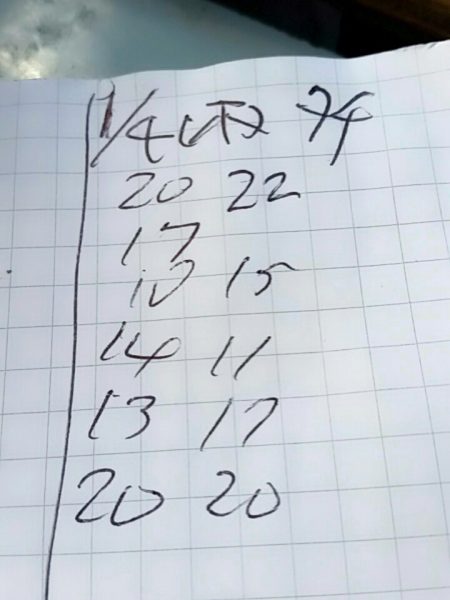 1/4 74
20 22
17
10 15
14 11
13 17
20 20